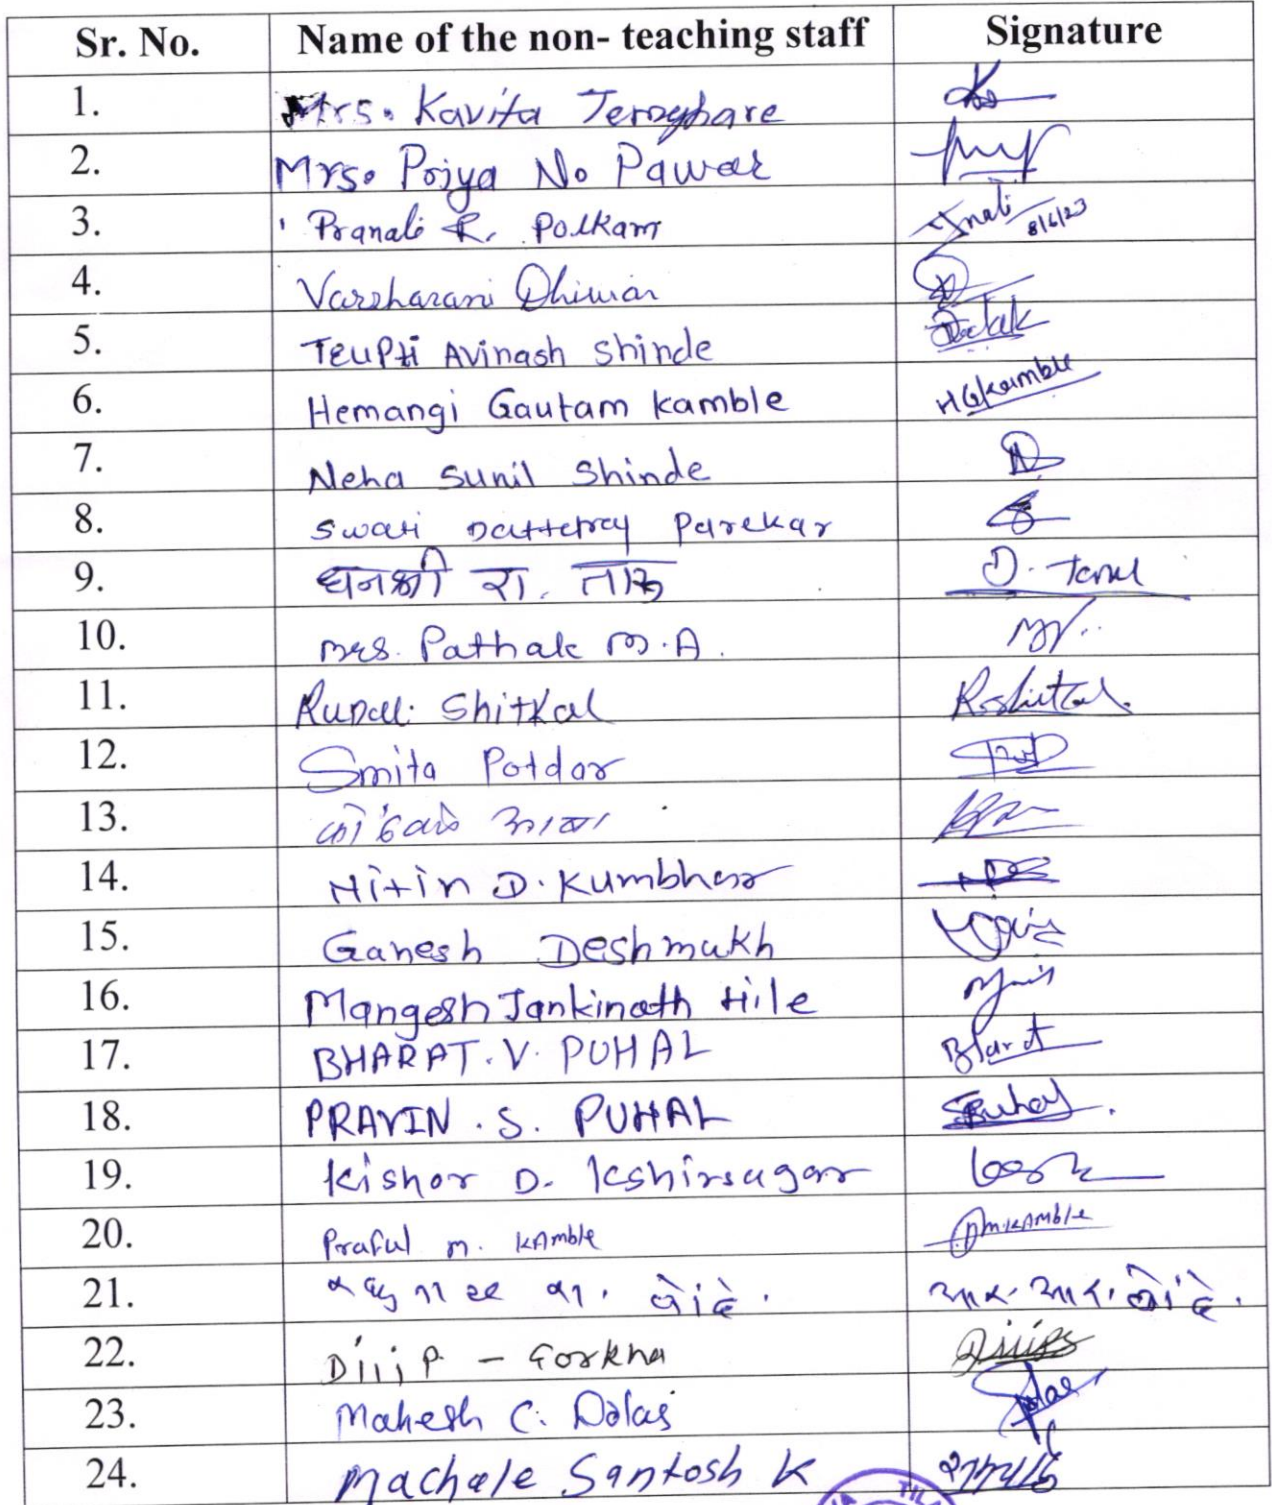 Sr. No. Name of the non- teaching staff Signature
1. Mrs. Kavita
2. Mrs. Poiya N. Pawar
3. Pranali R. Polkam 8/6/23
4. Varsharani Dhiwar
5. Trupti Avinash Shinde
6. Hemangi Gautam Kamble HGKamble
7. Neha Sunil Shinde
8. Swati Dattetray Parekar
9. धनश्री रा. D.
10. Mrs. Pathak M.A.
11. Rupali Shitkal RShitkal
12. Smita Potdar
13.
14. Nitin D. Kumbhar
15. Ganesh Deshmukh
16. Mangesh Jankinath Hile
17. BHARAT. V. PUHAL Bharat
18. PRAVIN . S. PUHAL SPuhal.
19. Kishor D. Kshirsagar
20. Praful M. KAmble PMKAMble
21.
22. Dilip - Gorkha
23. Mahesh C. Dalas
24. Machale Santosh K
TIL